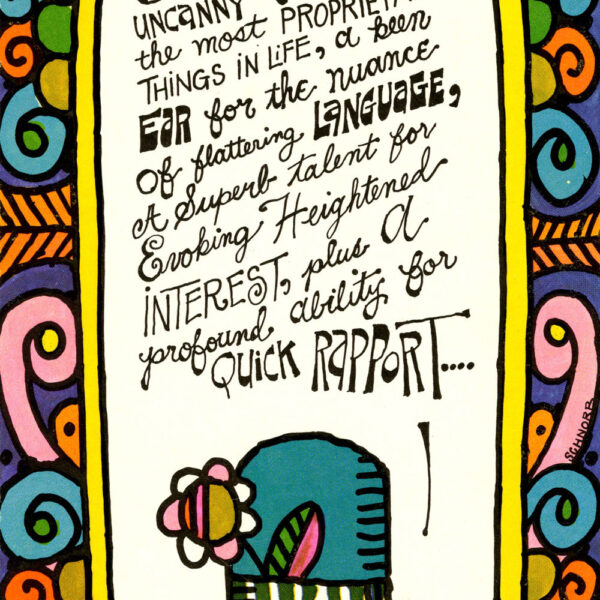 UNCANNY
the most PROPRIETA
THINGS IN LIFE, a keen
EAR for the nuance
Of flattering LANGUAGE,
A Superb talent for
Evoking Heightened
INTEREST, plus a
profound ability for
QUICK RAPPORT....
SCHNORR